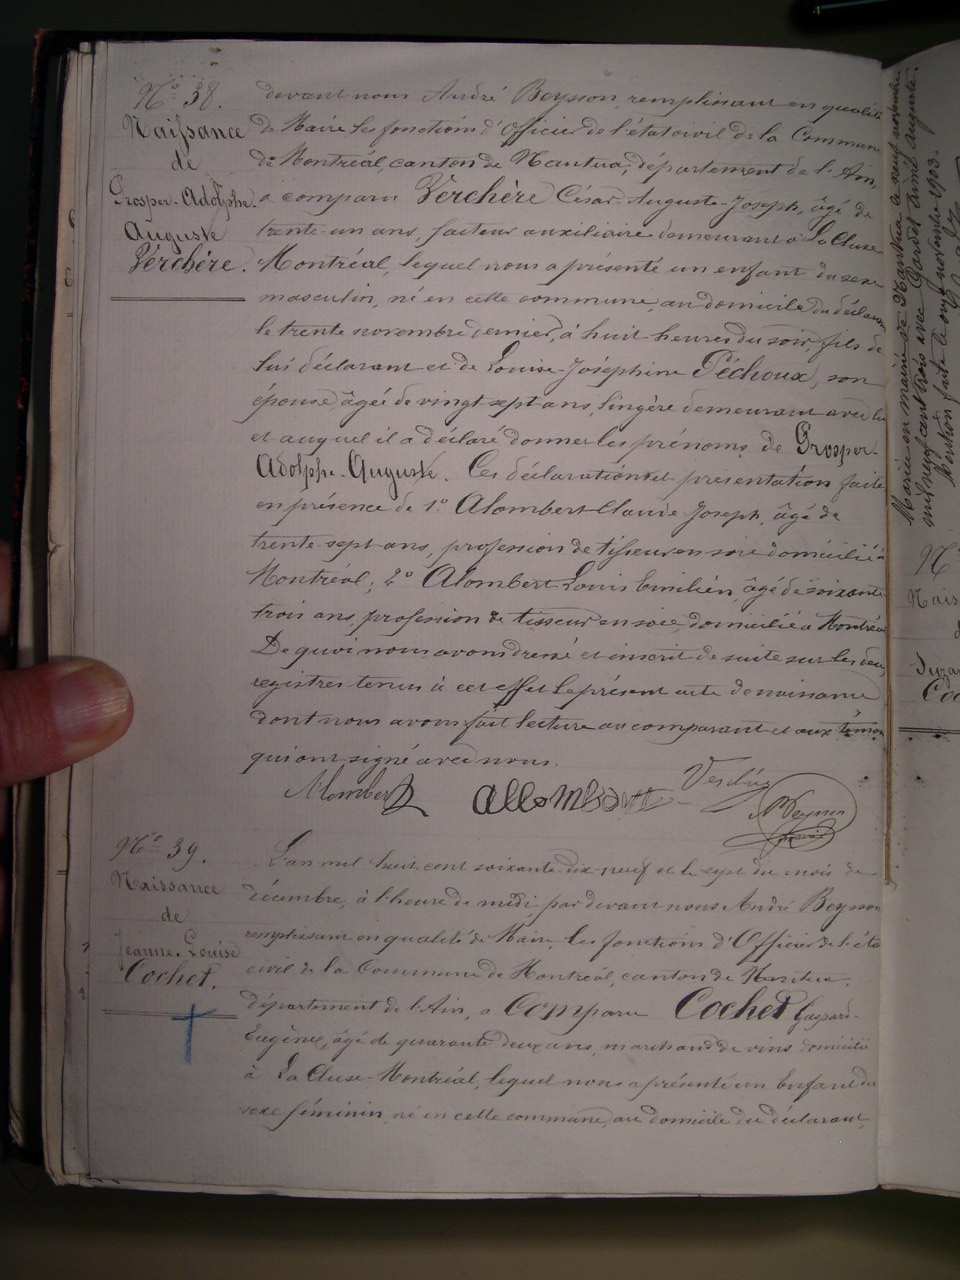 N° 38.
Naissance
de
Prosper-Adolphe
Auguste
Verchère.
devant nous André Beysson, remplissant en qualité
de Maire les fonctions d'Officier de l'état civil de la Commune
de Montréal, canton de Nantua, département de l'Ain,
a comparu Verchère César-Auguste-Joseph, âgé de
trente-un ans, facteur auxiliaire demeurant à La Cluse
Montréal, lequel nous a présenté un enfant du sexe
masculin, né en cette commune, au domicile du déclarant
le trente novembre dernier, à huit heures du soir, fils de
lui déclarant et de Louise-Joséphine Péchoux, son
épouse, âgée de vingt sept ans, lingère demeurant avec lui
et auquel il a déclaré donner les prénoms de Prosper-
Adolphe-Auguste. Ces déclaration et présentation faites
en présence de 1° Alombert Claude Joseph, âgé de
trente-sept ans, profession de tisseur en soie domicilié à
Montréal; 2° Alombert Louis Emilien, âgé de soixante
trois ans, profession de tisseur en soie, domicilié à Montréal
De quoi nous avons dressé et inscrit de suite sur les deux
registres tenus à cet effet le présent acte de naissance
dont nous avons fait lecture au comparant et aux témoins
qui ont signé avec nous.
Alombert Allombert Verchère A Beysson
N° 39.
Naissance
de
Jeanne-Louise
Cochet.
L'an mil huit cent soixante-dix-neuf et le sept du mois de
décembre, à l'heure de midi, par devant nous André Beysson
remplissant en qualité de Maire, les fonctions d'Officier de l'état
civil de la Commune de Montréal, canton de Nantua,
département de l'Ain, a Comparu Cochet Gaspard-
Eugène, âgé de quarante deux ans, marchand de vins domicilié
à La Cluse-Montréal, lequel nous a présenté un Enfant du
sexe féminin, né en cette commune, au domicile du déclarant,
Marié en mairie de Nantua le neuf novembre
mil neuf cent trois avec
Mention faite le onze novembre 1903.
N°
Nais
Coc